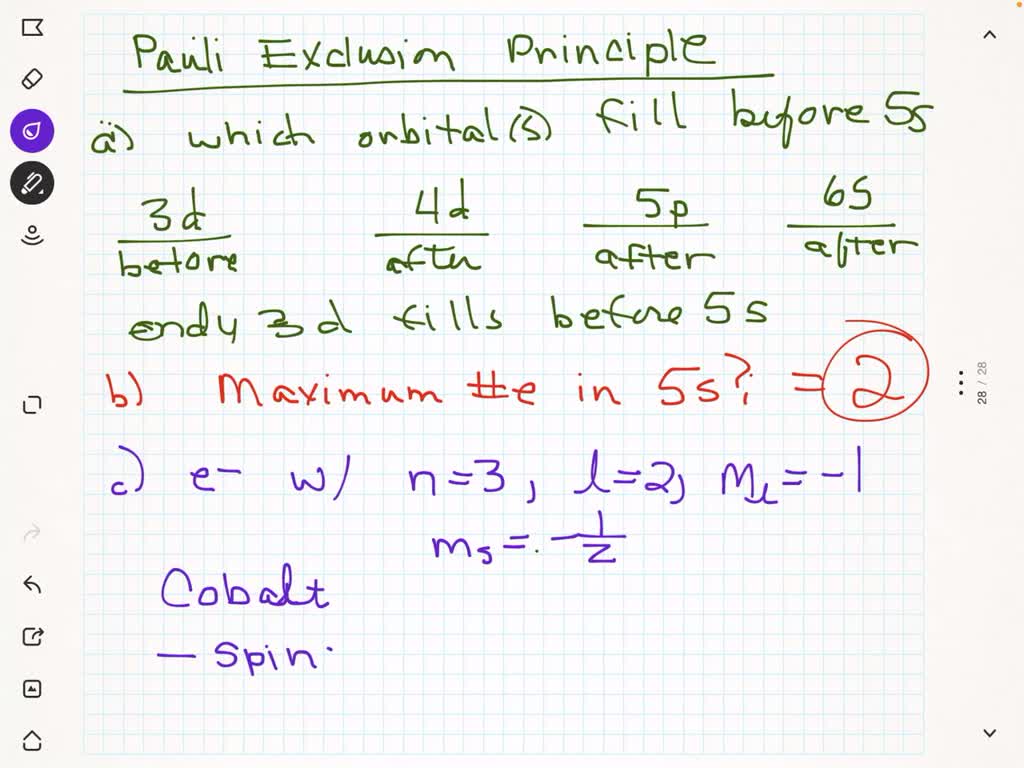 Pauli Exclusion Principle
a) which orbital(s) fill before 5s
3d 4d 5p 6s
before after after after
only 3d fills before 5s
b) Maximum #e in 5s? = 2
c) e- w/ n=3, l=2, ml=-1
ms=-1/2
Cobalt
- Spin
28 / 28